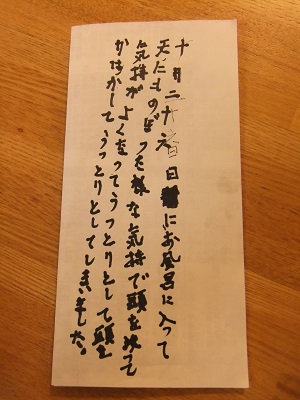 十月二十日にお風呂に入って
天にものぼった様な気持で頭を洗って
気持がよくなってうっとりとして頭を
かはかしてうっとりとしてしまいました。